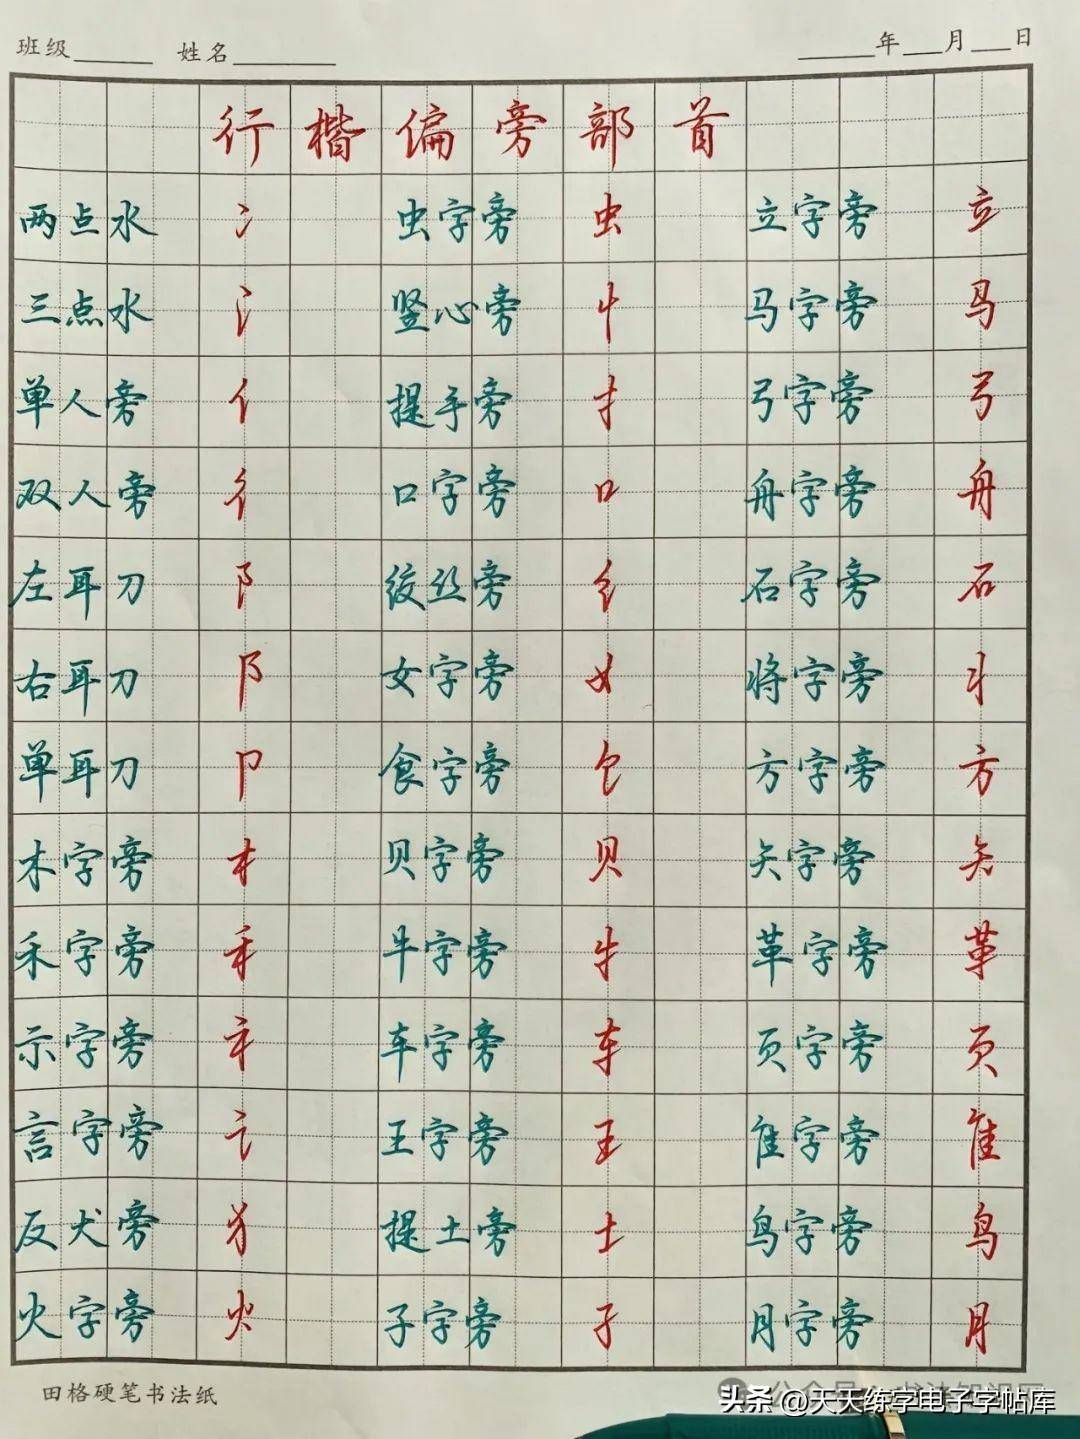 班级 姓名 年 月 日
行楷偏旁部首
两点水 冫 虫字旁 虫 立字旁 立
三点水 氵 竖心旁 忄 马字旁 马
单人旁 亻 提手旁 扌 弓字旁 弓
双人旁 彳 口字旁 口 舟字旁 舟
左耳刀 阝 绞丝旁 纟 石字旁 石
右耳刀 阝 女字旁 女 将字旁 丬
单耳刀 卩 食字旁 饣 方字旁 方
木字旁 木 贝字旁 贝 矢字旁 矢
禾字旁 禾 牛字旁 牜 革字旁 革
示字旁 礻 车字旁 车 页字旁 页
言字旁 讠 王字旁 王 隹字旁 隹
反犬旁 犭 提土旁 土 鸟字旁 鸟
火字旁 火 子字旁 子 月字旁 月
田格硬笔书法纸
头条 @天天练字电子字帖库